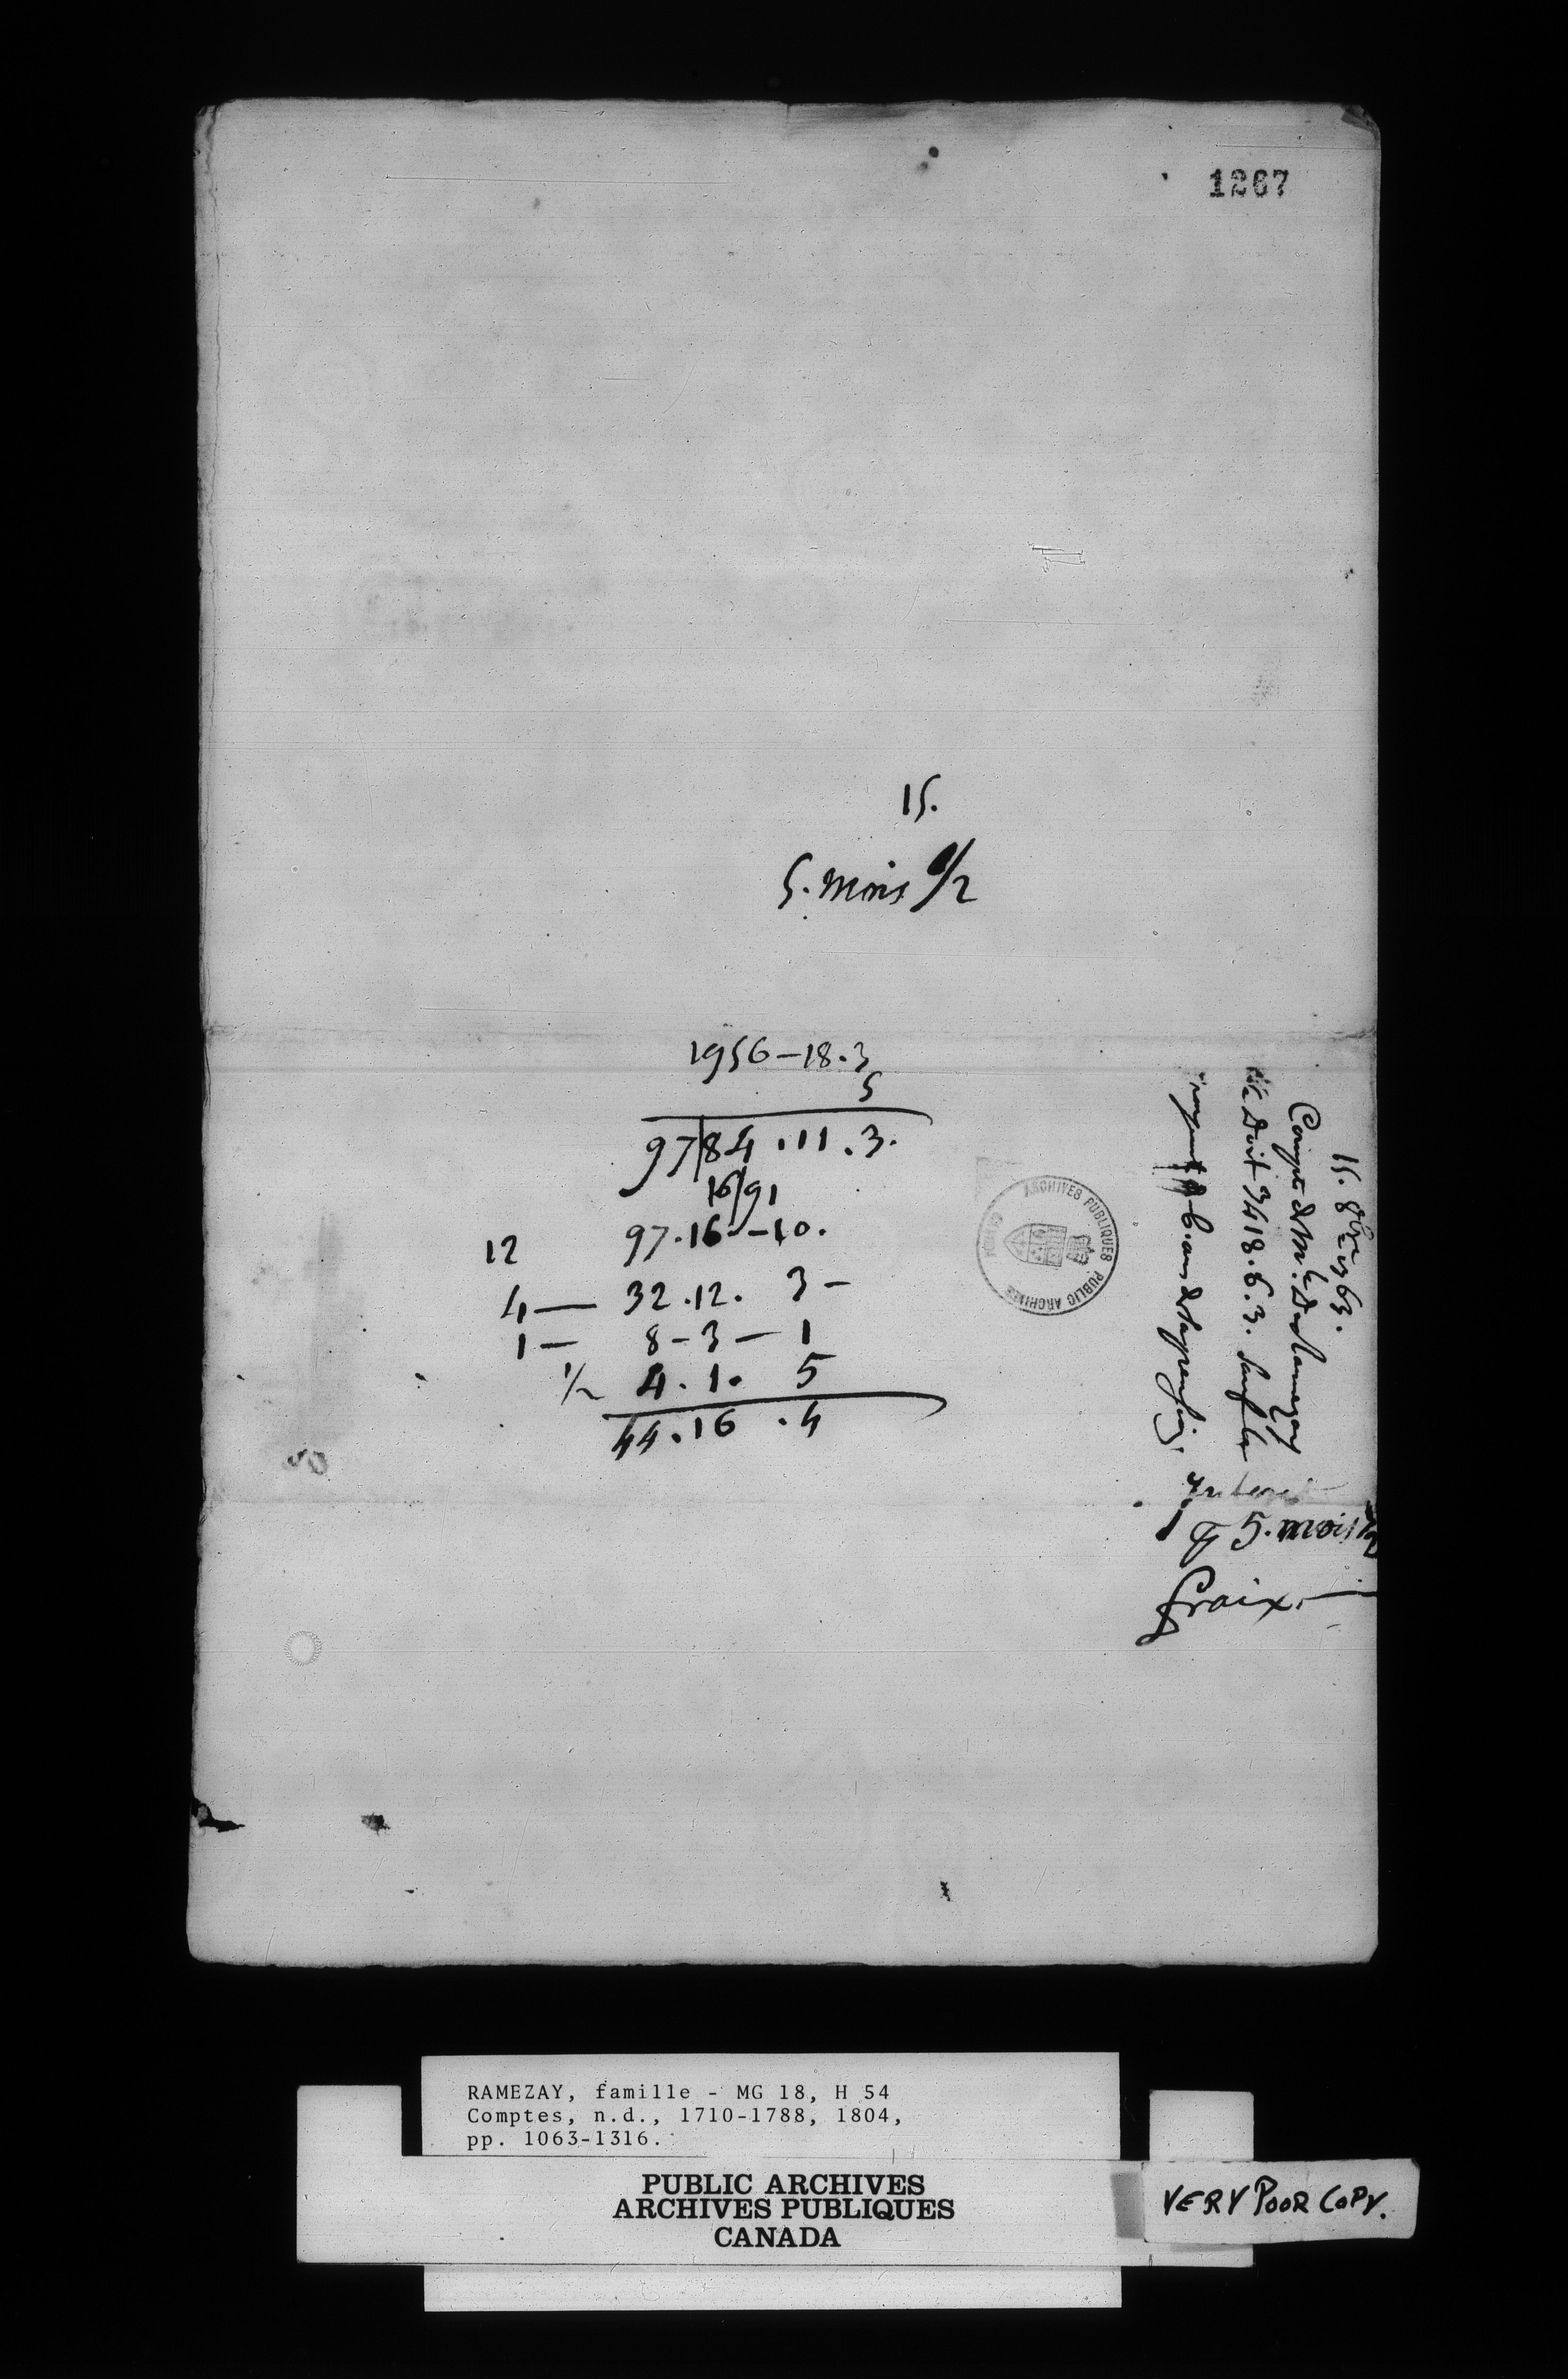 1267
15.
5. mois 1/2
1956-18.3
5
97|84.11.3.
16/91
97.16-10.
12
4— 32.12. 3-
1— 8-3-1
1/2 4.1. 5
44.16.4
15. 8bre 1763.
Compte de Mr. De Ramezay
Doit 3418.6.3. Sauf les
interest
& 5. mois 1/2
fraix.—
ARCHIVES PUBLIQUES CANADA
PUBLIC ARCHIVES
RAMEZAY, famille - MG 18, H 54
Comptes, n.d., 1710-1788, 1804,
pp. 1063-1316.
PUBLIC ARCHIVES
ARCHIVES PUBLIQUES
CANADA
VERY POOR COPY.